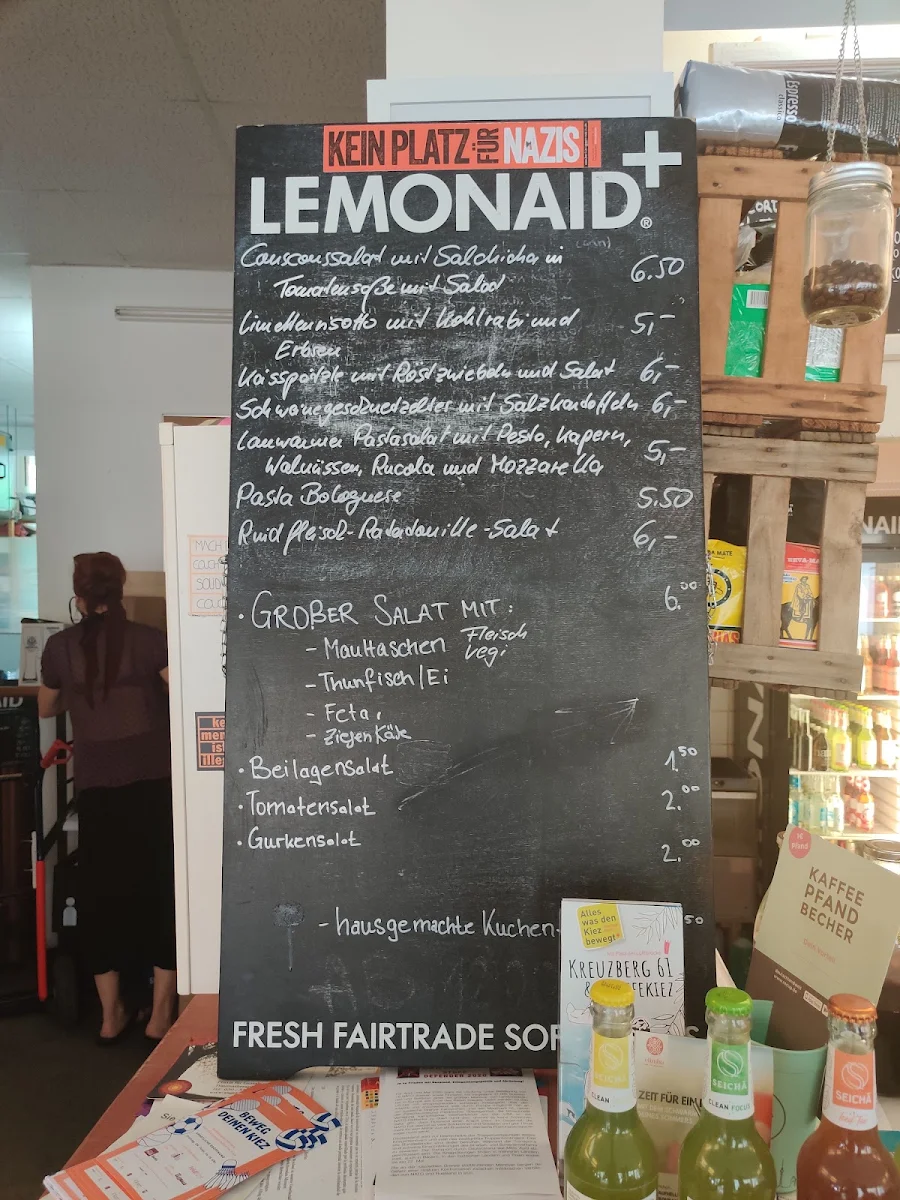 KEIN PLATZ FÜR NAZIS
LEMONAID+®
Couscoussalat mit Salchicha in 6.50
Tomatensoße mit Salad
Limettenrisotto mit Kohlrabi und 5,-
Erbsen
Kässpätzle mit Röstzwiebeln und Salat 6,-
mit Salzkartoffeln 6,-
Lauwarmer Pastasalat mit Pesto, Kapern, 5,-
Walnüssen, Rucola und Mozzarella
Pasta Bolognese 5.50
Rindfleisch-Ratatouille-Salat 6,-
· GROßER SALAT MIT: 6.00
- Maultaschen Fleisch
Vegi
- Thunfisch/Ei
- Feta,
- Ziegenkäse
· Beilagensalat 1.50
· Tomatensalat 2.00
· Gurkensalat 2.00
- hausgemachte Kuchen- 50
FRESH FAIRTRADE SOF S
Espresso
classico
MACH
SOLID
ke
men
ist
ille
Alles
was den
Kiez
bewegt
KREUZBERG 61
&
EKIEZ
Pfand
KAFFEE
PFAND
BECHER
ZEIT FÜR EIN
CLEAN
SEICHĀ
CLEAN FOCUS
SEICHĀ
BEWEG
DEINEN KIEZ